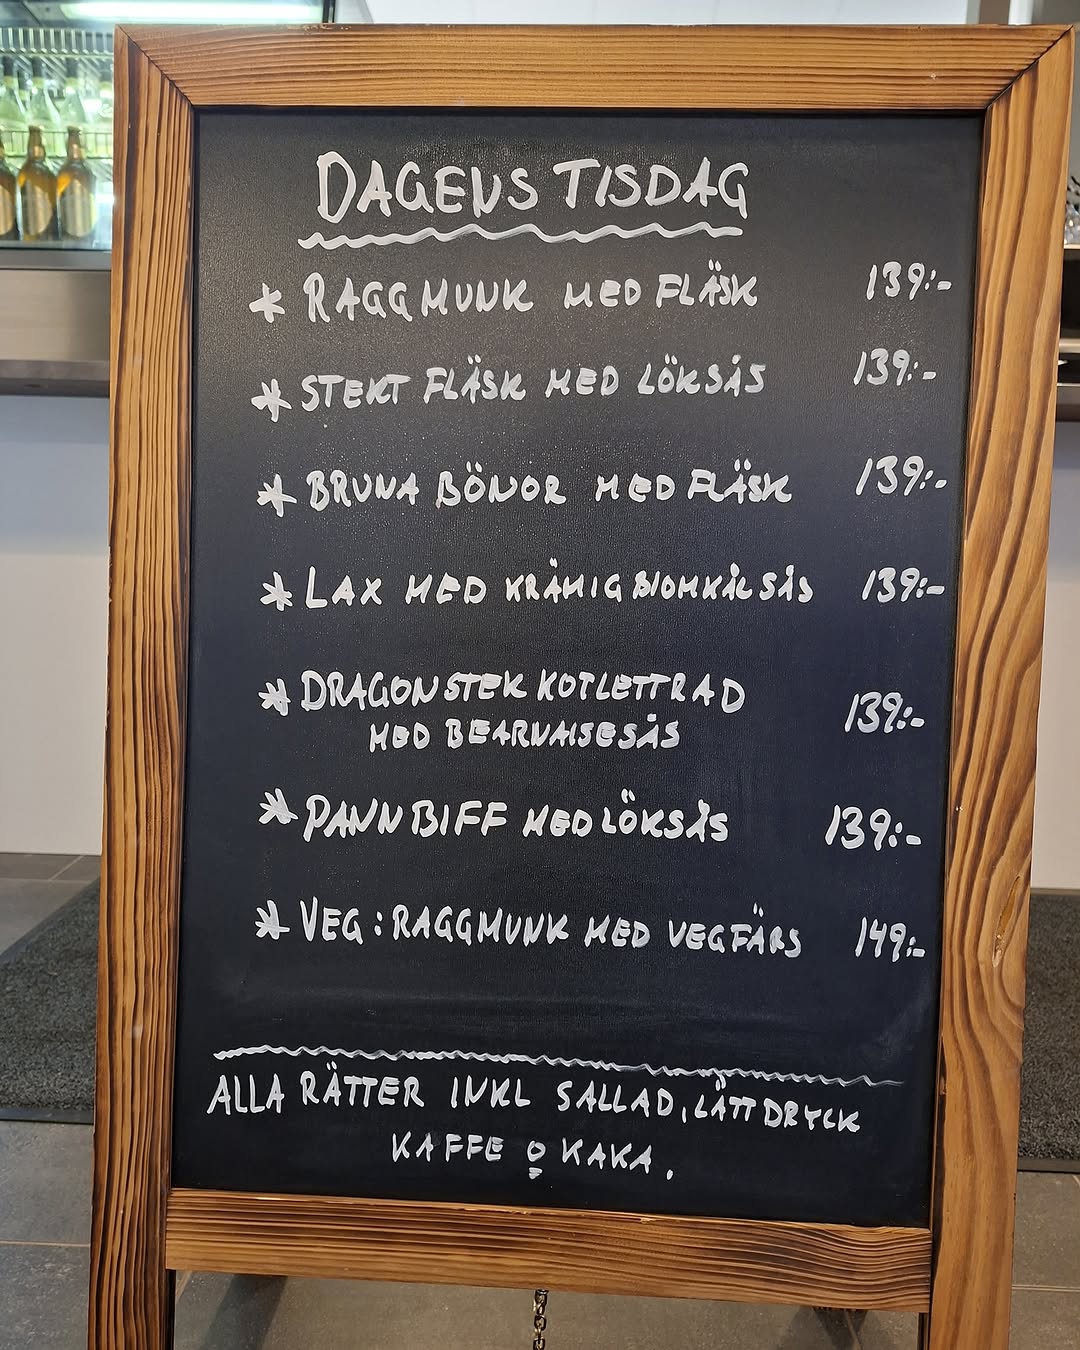 DAGENS TISDAG
* RAGGMUNK MED FLÄSK 139:-
* STEKT FLÄSK MED LÖKSÅS 139:-
* BRUNA BÖNOR MED FLÄSK 139:-
* LAX MED KRÄMIG BLOMKÅLSSÅS 139:-
* DRAGONSTEK KOTLETTRAD
MED BEARNAISESÅS 139:-
* PANNBIFF MED LÖKSÅS 139:-
* VEG: RAGGMUNK MED VEGFÄRS 149:-
ALLA RÄTTER INKL SALLAD, LÄTTDRYCK
KAFFE o KAKA.